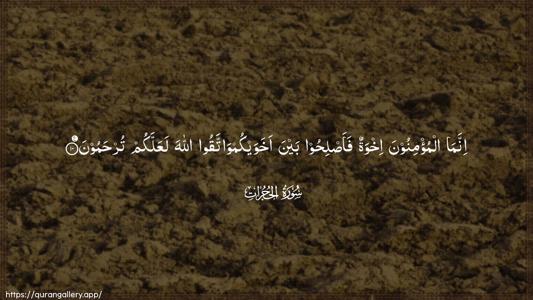 اِنَّمَا الْمُؤْمِنُوْنَ اِخْوَةٌ فَاَصْلِحُوْا بَيْنَ اَخَوَيْكُمْوَاتَّقُوا اللّٰهَ لَعَلَّكُمْ تُرْحَمُوْنَ۝۱۰
سُوْرَةُ الحُجُرَاتِ
https://qurangallery.app/